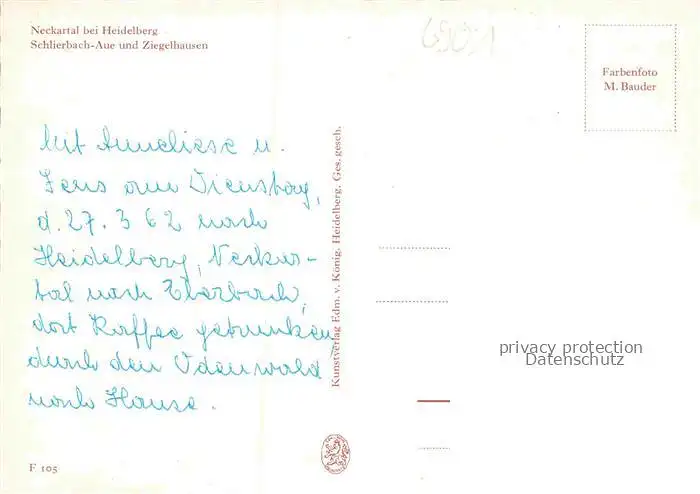 Neckartal bei Heidelberg
Schlierbach-Aue und Ziegelhausen
Farbenfoto
M. Bauder
Mit Anneliese u.
Jens am Dienstag,
d. 27. 3 62 nach
Heidelberg, Neckar-
tal nach Eberbach,
dort Kaffee getrunken
durch den Odenwald
nach Hause.
Kunstverlag Edm. v. König, Heidelberg. Ges. gesch.
privacy protection
Datenschutz
F 105